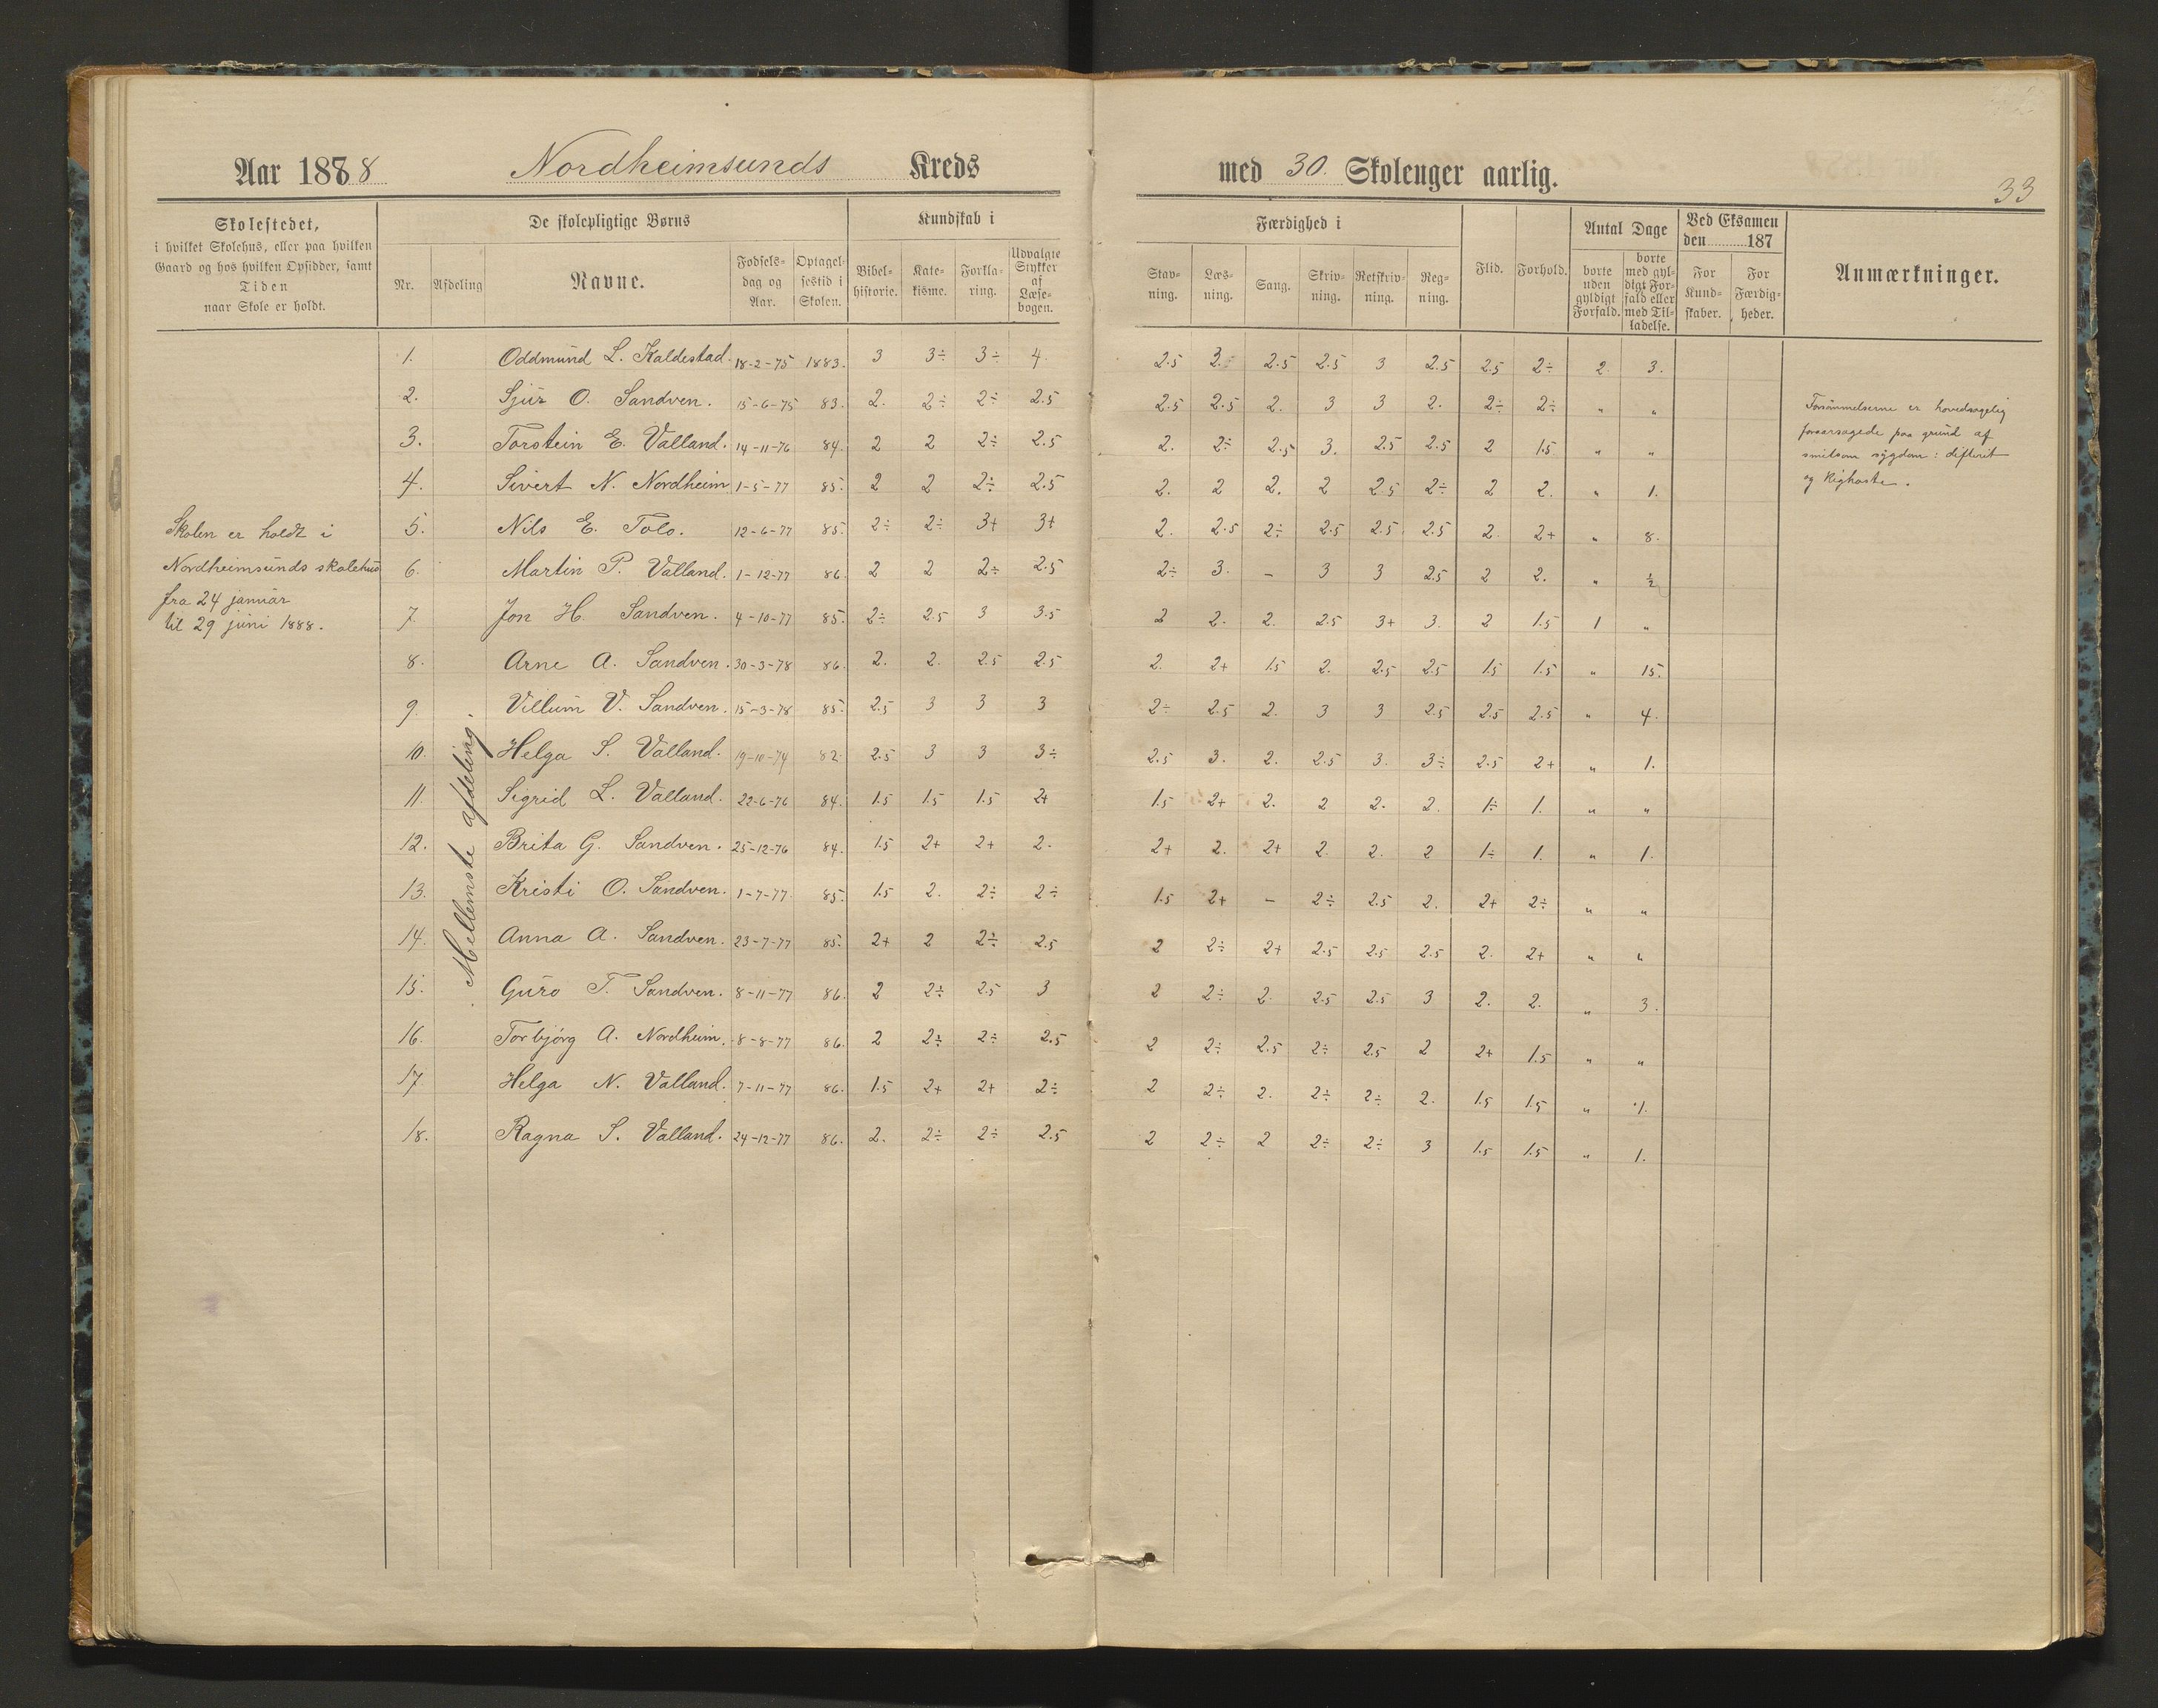 Aar 1878 8 Nordheimsunds Kreds med 30. Skolenger aarlig.
33
Skolestedet,
i hvilket Skolehus, eller paa hvilken
Gaard og hos hvilken Opsidder, samt
Tiden
naar Skole er holdt.
De skolepligtige Børns
Nr. Afdeling Navne. Fødsels-dag og Aar. Optagel-sestid i Skolen.
Kundskab i
Bibel-historie. Kate-kisme. Forkla-ring. Udvalgte Stykker af Læse-bogen.
Færdighed i
Stav-ning. Læs-ning. Sang. Skriv-ning. Retskriv-ning. Reg-ning.
Flid. Forhold.
Antal Dage
borte uden gyldigt Forfald. borte med gyl-digt For-fald eller med Til-ladelse.
Ved Eksamen
den 187
For Kund-skaber. For Færdig-heder.
Anmærkninger.
1. Oddmund L. Kaldestad. 18-2-75 1883. 3 3÷ 3÷ 4. 2.5 3. 2.5 2.5 3 2.5 2.5 2÷ 2. 3.
2. Sjur O. Sandven. 15-6-75 83. 2. 2÷ 2÷ 2.5 2.5 2.5 2. 3 3 2. 2÷ 2÷ " "
3. Torstein E. Valland. 14-11-76 84. 2 2 2÷ 2.5 2. 2÷ 2.5 3. 2.5 2.5 2 1.5 " "
4. Sivert N. Nordheim 1-5-77 85. 2 2 2÷ 2.5 2. 2 2. 2 2.5 2÷ 2 2. " 1.
5. Nils E. Tolo. 12-6-77 85. 2÷ 2÷ 3+ 3+ 2. 2.5 2÷ 2.5 2.5 2.5 2. 2+ " 8.
6. Martin P. Valland. 1-12-77 86. 2 2 2÷ 2.5 2÷ 3. – 3 3 2.5 2 2. " ½
7. Jon H. Sandven. 4-10-77 85. 2÷ 2.5 3 3.5 2 2. 2. 2.5 3+ 3. 2 1.5 1 "
8. Arne A. Sandven. 30-3-78 86. 2. 2. 2.5 2.5 2. 2+ 1.5 2. 2.5 2.5 1.5 1.5 " 15.
9. Villum V. Sandven. 15-3-78 85. 2.5 3 3 3 2÷ 2.5 2. 3 3 2.5 2.5 2.5 " 4.
10. Helga S. Valland. 19-10-74 82. 2.5 3 3 3÷ 2.5 3. 2. 2.5 3. 3÷ 2.5 2+ " 1.
11. Sigrid L. Valland. 22-6-76 84. 1.5 1.5 1.5 2+ 1.5 2+ 2. 2 2. 2. 1÷ 1. " "
12. Brita G. Sandven. 25-12-76 84. 1.5 2+ 2+ 2. 2+ 2. 2+ 2. 2. 2 1÷ 1. " 1.
13. Kristi O. Sandven. 1-7-77. 85. 1.5 2. 2÷ 2÷ 1.5 2+ – 2÷ 2.5 2. 2+ 2÷ " "
14. Anna A. Sandven. 23-7-77 85. 2+ 2 2÷ 2.5 2 2÷ 2+ 2.5 2.5 2.5 2. 2+ " "
15. Guro T. Sandven. 8-11-77 86. 2 2÷ 2.5 3 2 2÷ 2. 2.5 2.5 3 2. 2. " 3.
16. Torbjórg A. Nordheim. 8-8-77 86. 2 2÷ 2÷ 2.5 2 2÷ 2.5 2÷ 2.5 2 2+ 1.5 " "
17. Helga N. Valland. 7-11-77 86. 1.5 2+ 2+ 2÷ 2 2÷ 2. 2÷ 2÷ 2. 1.5 1.5 " 1.
18. Ragna S. Valland. 24-12-77 86. 2. 2÷ 2÷ 2.5 2 2÷ 2 2÷ 2÷ 3 1.5 1.5 " 1.
Mellemste afdeling.
Skolen er holdt i
Nordheimsunds skolehus
fra 24 januar
til 29 juni 1888.
Forsømmelserne er hovedsagelig
foraarsagede paa grund af
smitsom sygdom: difterit
og kighoste.